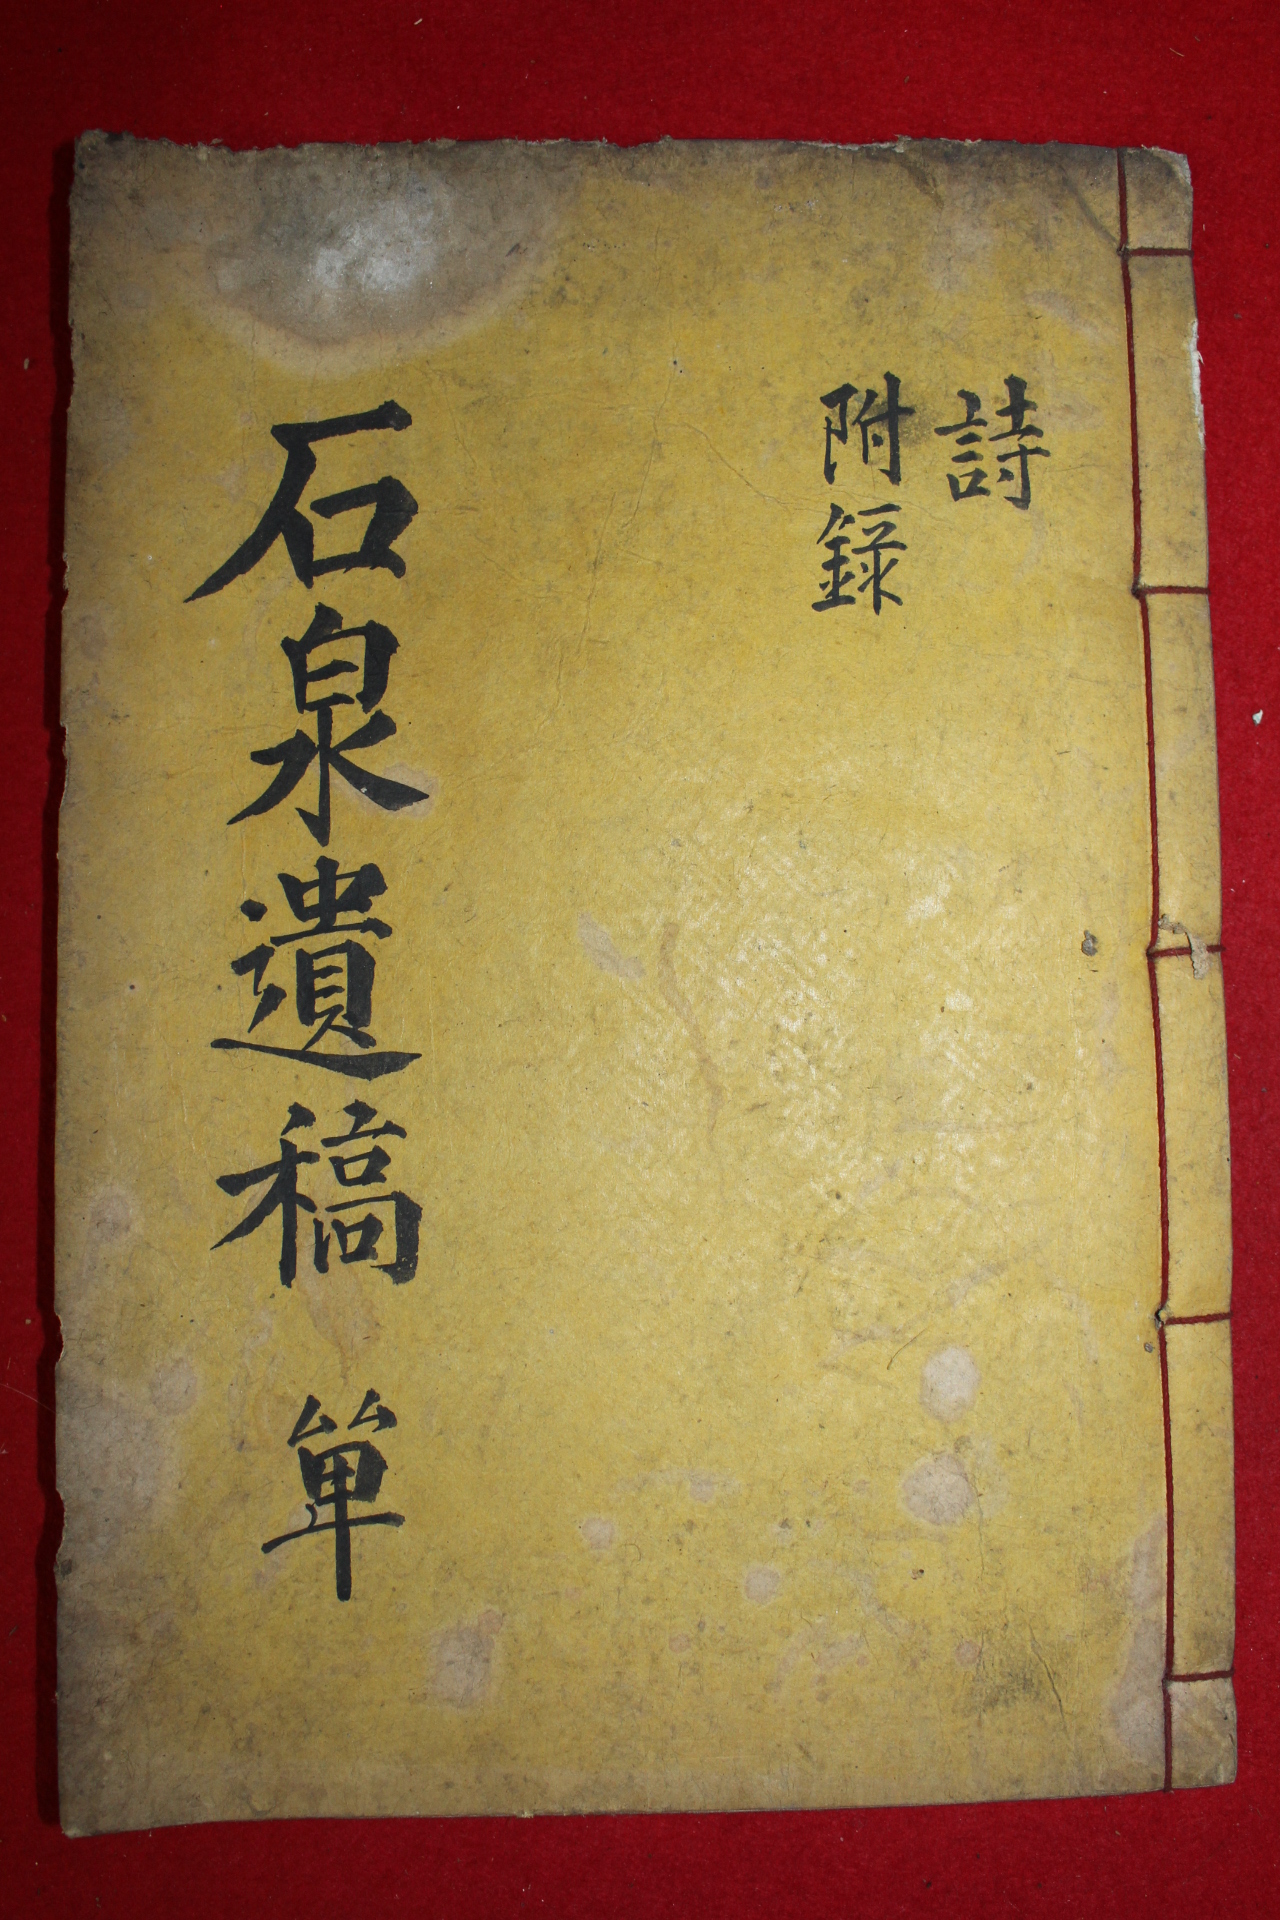 詩
附錄
石泉遺稿 單